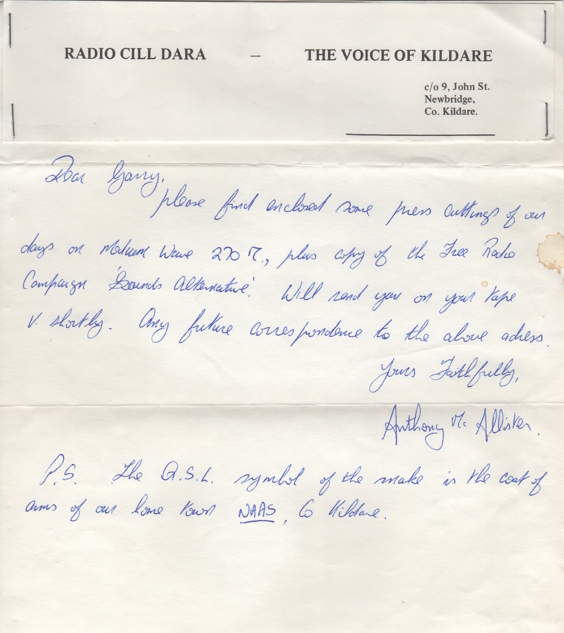 RADIO CILL DARA – THE VOICE OF KILDARE
c/o 9, John St.
Newbridge,
Co. Kildare.
Dear Garry,
please find enclosed some press cuttings of our
days on Medium Wave 270 M., plus copy of the Free Radio
Campaign 'Sounds Alternative'. Will send you on your tape
v. shortly. Any future correspondence to the above adress.
Yours Faithfully,
Anthony Mc Allister.
P.S. The Q.S.L. symbol of the snake is the coat of
arms of our home town NAAS, Co Kildare.